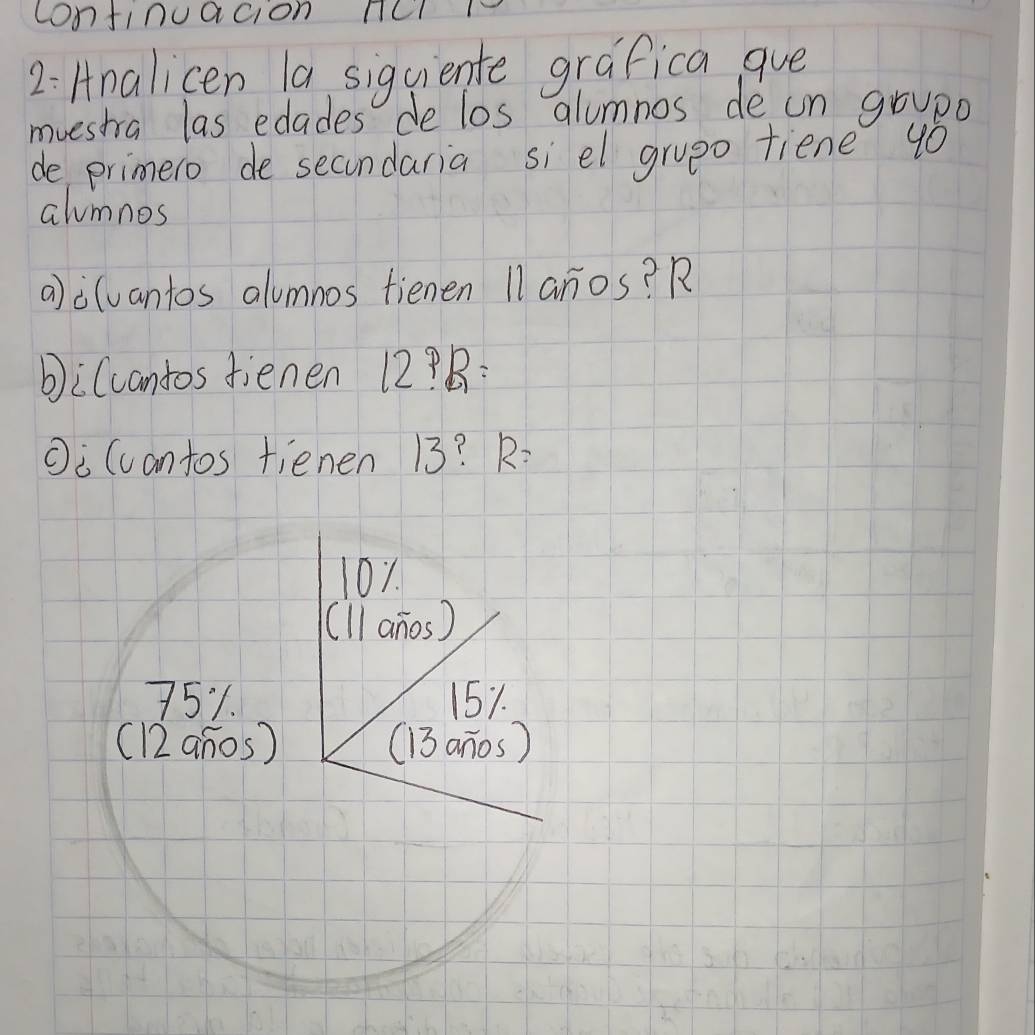 continuación
2. Analicen la siguiente gráfica que
muestra las edades de los alumnos de un grupo
de primero de secundaria si el grupo tiene 40
alumnos
a) ¿Cuantos alumnos tienen 11 años? R
b) ¿Cuantos tienen 12? R:
c) ¿Cuantos tienen 13? R:
10%
(11 años)
75%
(12 años)
15%
(13 años)